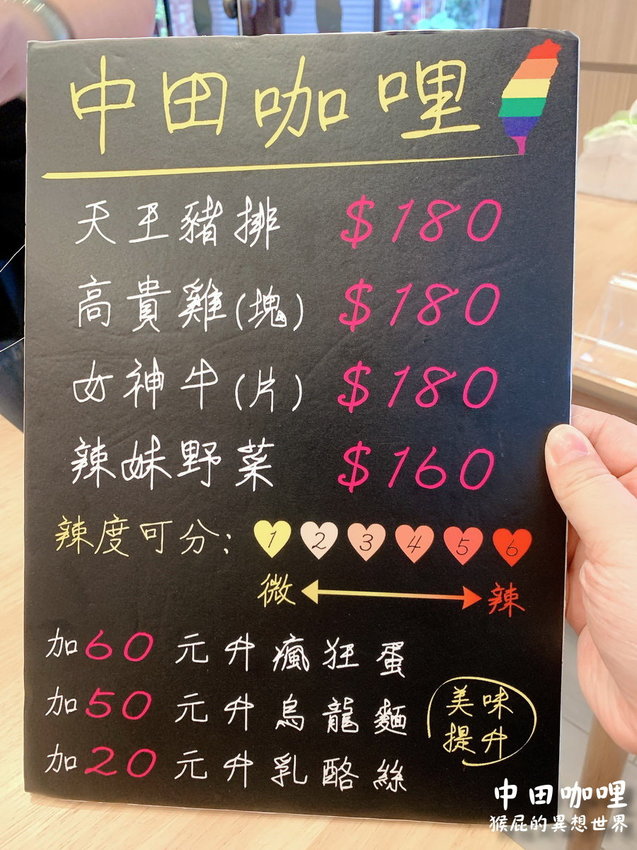 中田咖哩
天王豬排 $180
高貴雞(塊) $180
女神牛(片) $180
辣妹野菜 $160
辣度可分: 1 2 3 4 5 6
微 辣
加60元升瘋狂蛋
加50元升烏龍麵
加20元升乳酪絲
美味
提升
中田咖哩
猴屁的異想世界